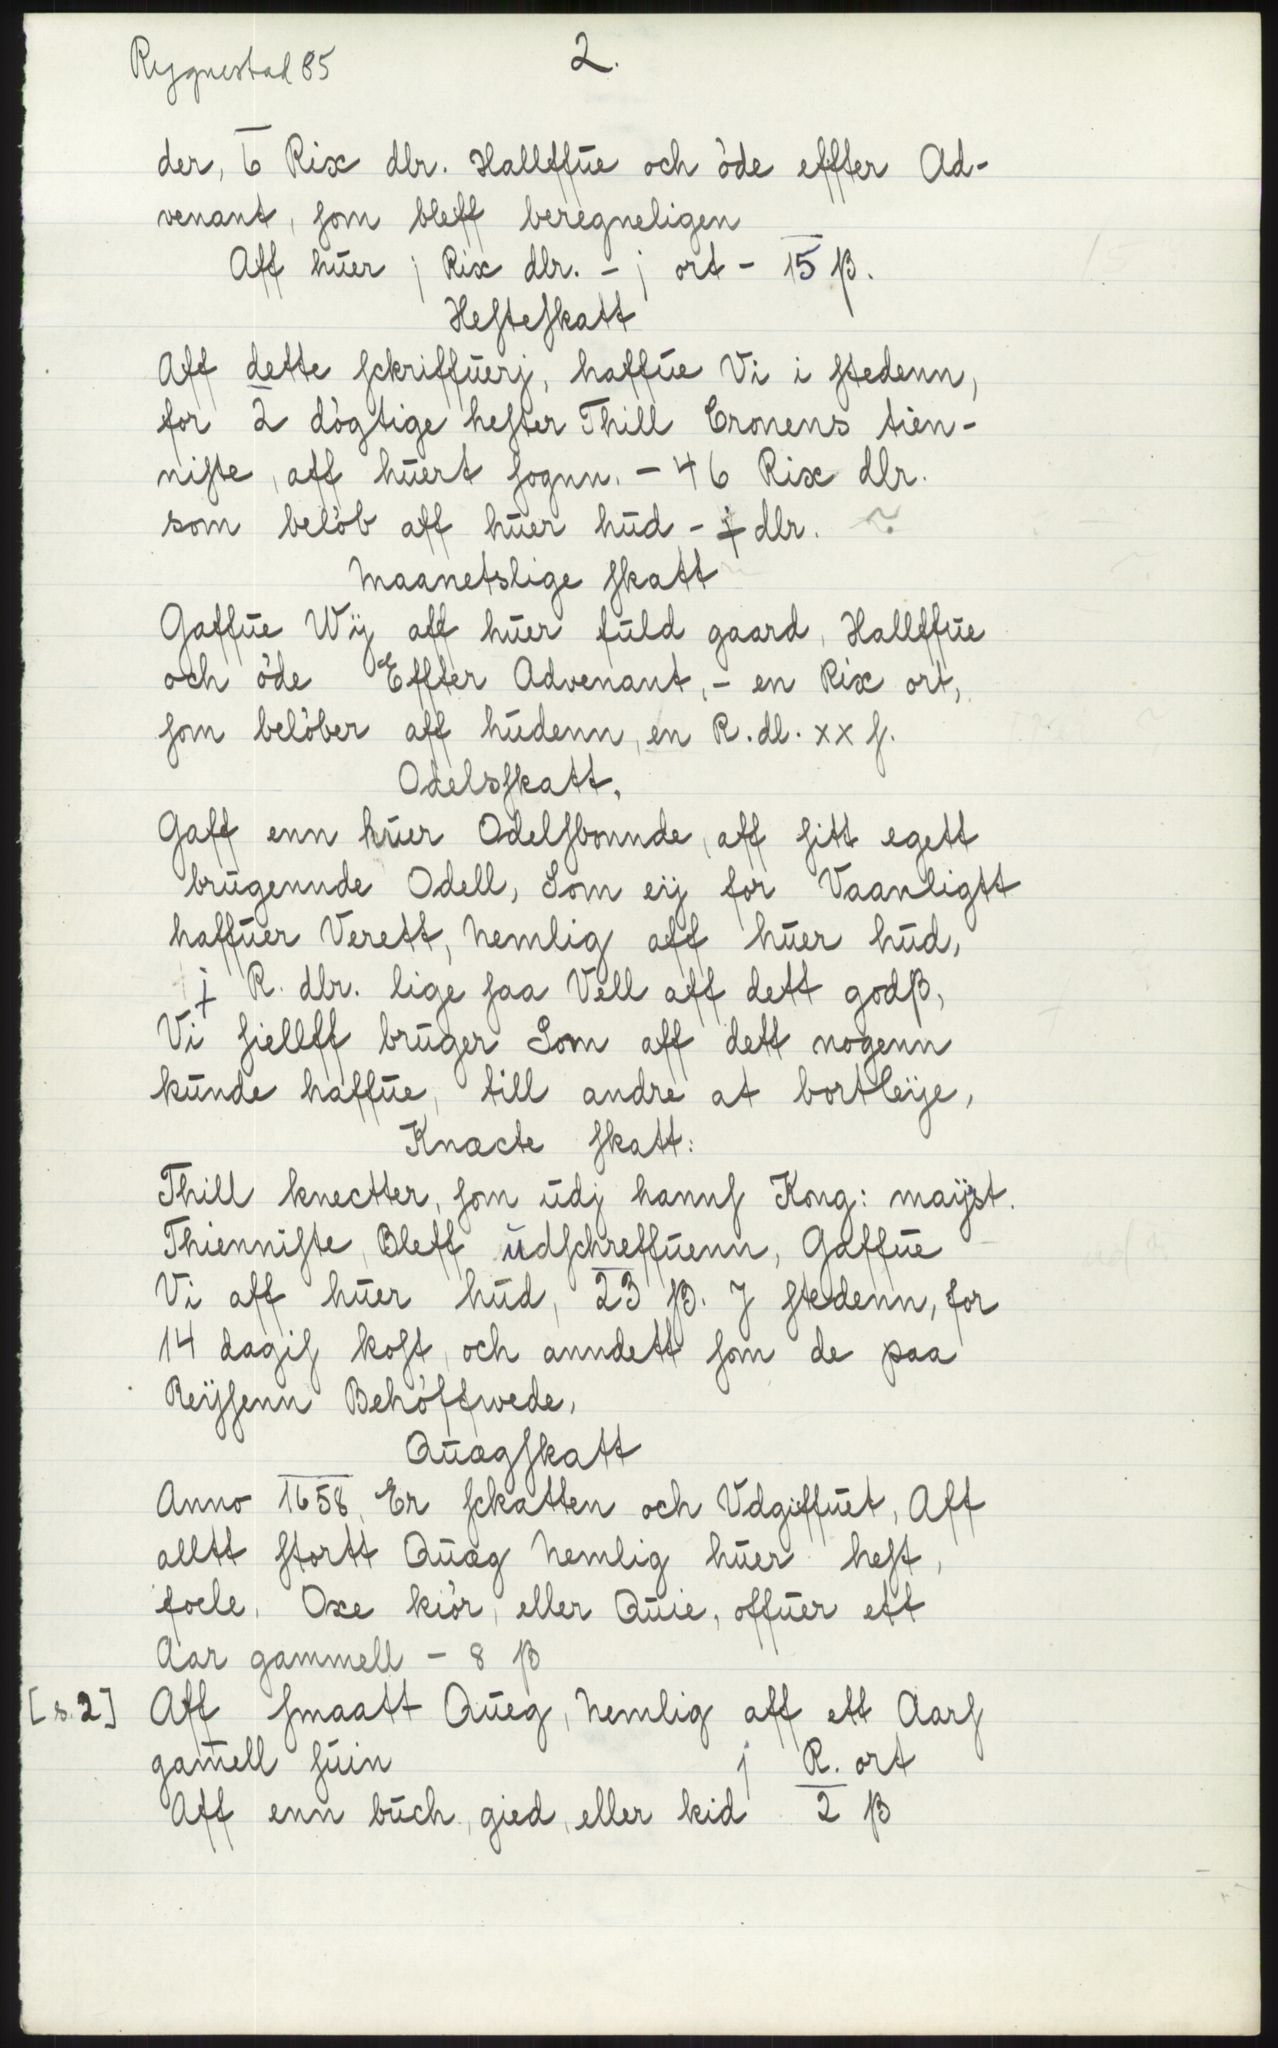 Rygnestad 85
2.
der, 6 Rix dlr. Hallffue och öde effter Ad-
venant, som bleff beregneligen
Aff huer j Rix dlr. - j ort - 15 β.
Hesteskatt
Aff dette sckriffuerj, haffue Vi i stedenn,
for 2 dögtige hester Thill Cronens tien-
niste, aff huert sognn. - 46 Rix dlr.
som belöb aff huer hud - j dlr. ~
Maanetslige skatt
Gaffue Wÿ aff huer fuld gaard, Hallffue
och öde Effter Advenant, - en Rix ort,
som belöber aff hudenn, en R. dl. xx s.
Odelsskatt,
Gaff enn huer Odelsbonnde, aff sitt egett
brugennde Odell, Som eÿ for Vaanligtt
haffuer Verett, Nemlig aff huer hud,
j R. dlr. lige saa Vell aff dett godβ,
Vi siellff bruger Som aff dett nogenn
kunde haffue, till andre at bortleÿe,
Knæcte skatt:
Thill knectter, som udj hanns Kong: maÿst.
Thienniste, Bleff udschreffuenn, Gaffue
Vi aff huer hud, 23 β. J stedenn, for
14 dagis kost, och anndett som de paa
Reÿsenn Behöffwede,
Quægskatt
Anno 1658, Er sckatten och Vdgiffuet, Aff
alltt stortt Quæg Nemlig huer hest,
focle, Oxe kiör, eller Quie, offuer ett
Aar gammell - 8 β
[s. 2] Aff smaatt Queg, Nemlig aff ett Aars
gam̄ell suin j R. ort
Aff enn buch, gied, eller kid 2 β